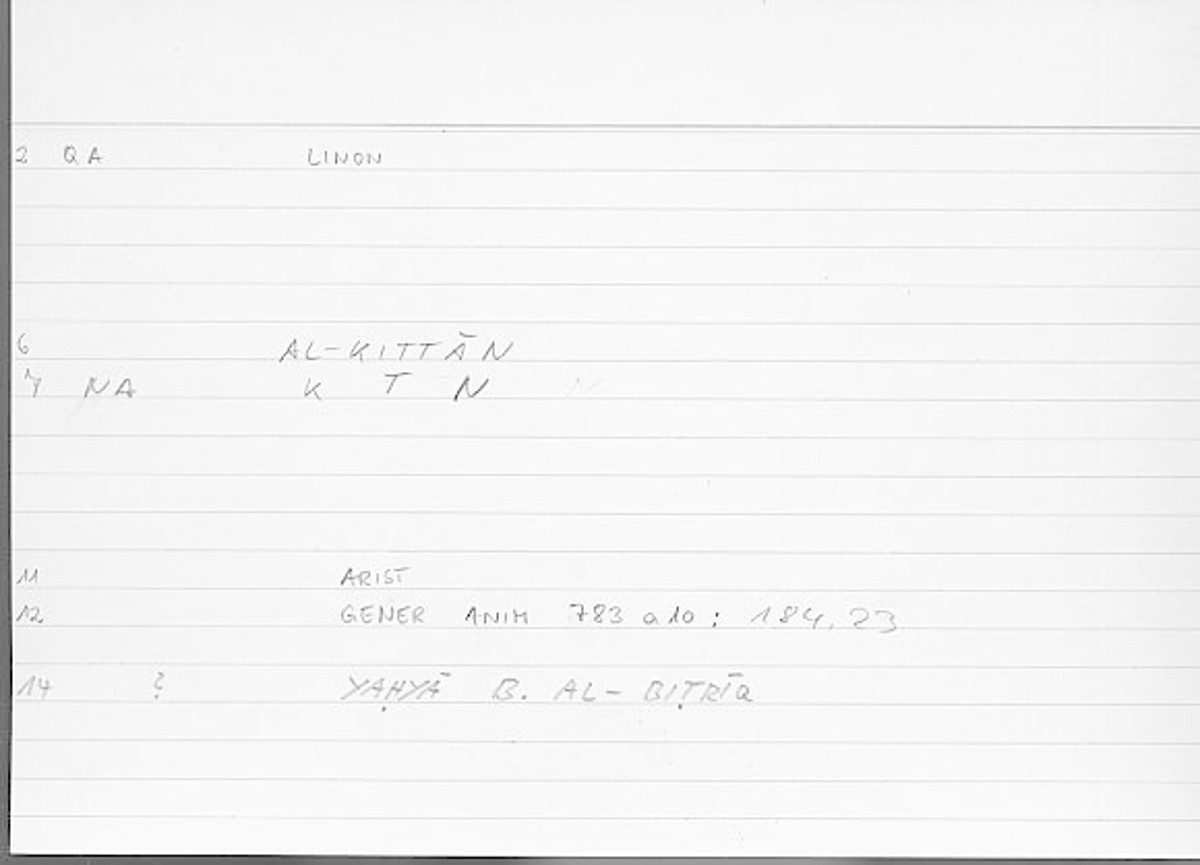 2 QA LINON
6 AL-KITTĀN
7 NA K T N
11 ARIST
12 GENER ANIM 783 a 10 : 184, 23
14 ? YAḤYĀ B. AL-BIṬRĪQ